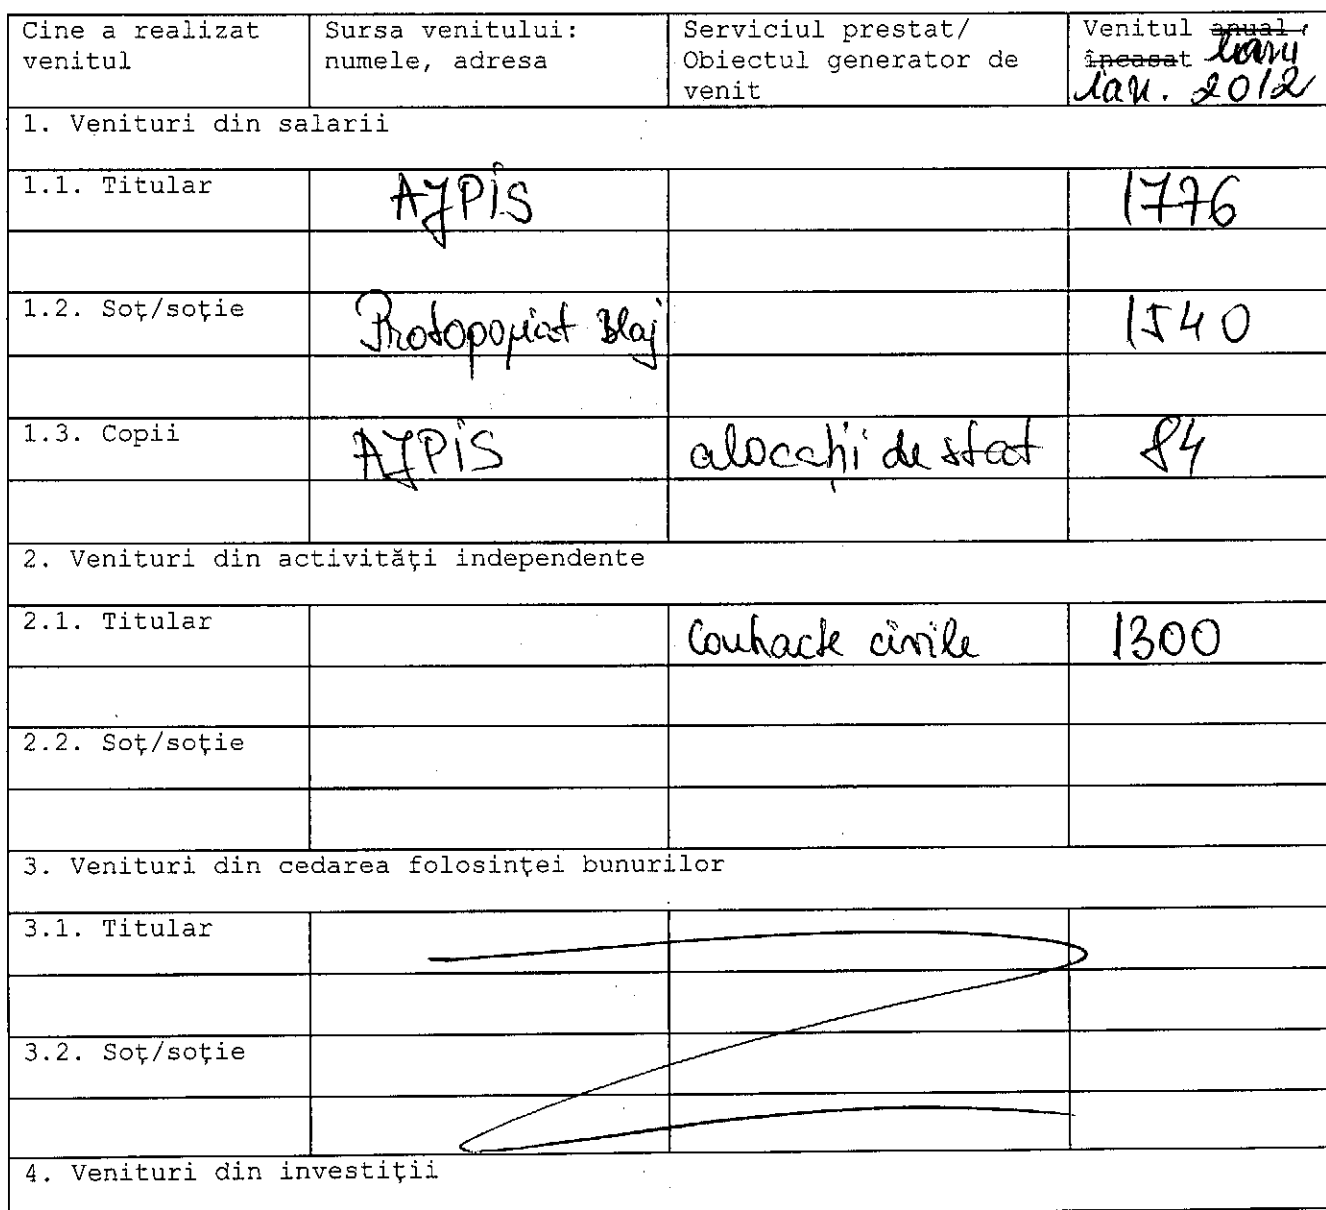 Cine a realizat venitul | Sursa venitului: numele, adresa | Serviciul prestat/ Obiectul generator de venit | Venitul anual încasat ian. 2012
1. Venituri din salarii
1.1. Titular | AJPIS | 1776
1.2. Soţ/soţie | Protopopiat Blaj | 1540
1.3. Copii | AJPIS | alocaţii de stat | 84
2. Venituri din activităţi independente
2.1. Titular | Contracte civile | 1300
2.2. Soţ/soţie
3. Venituri din cedarea folosinţei bunurilor
3.1. Titular
3.2. Soţ/soţie
4. Venituri din investiţii